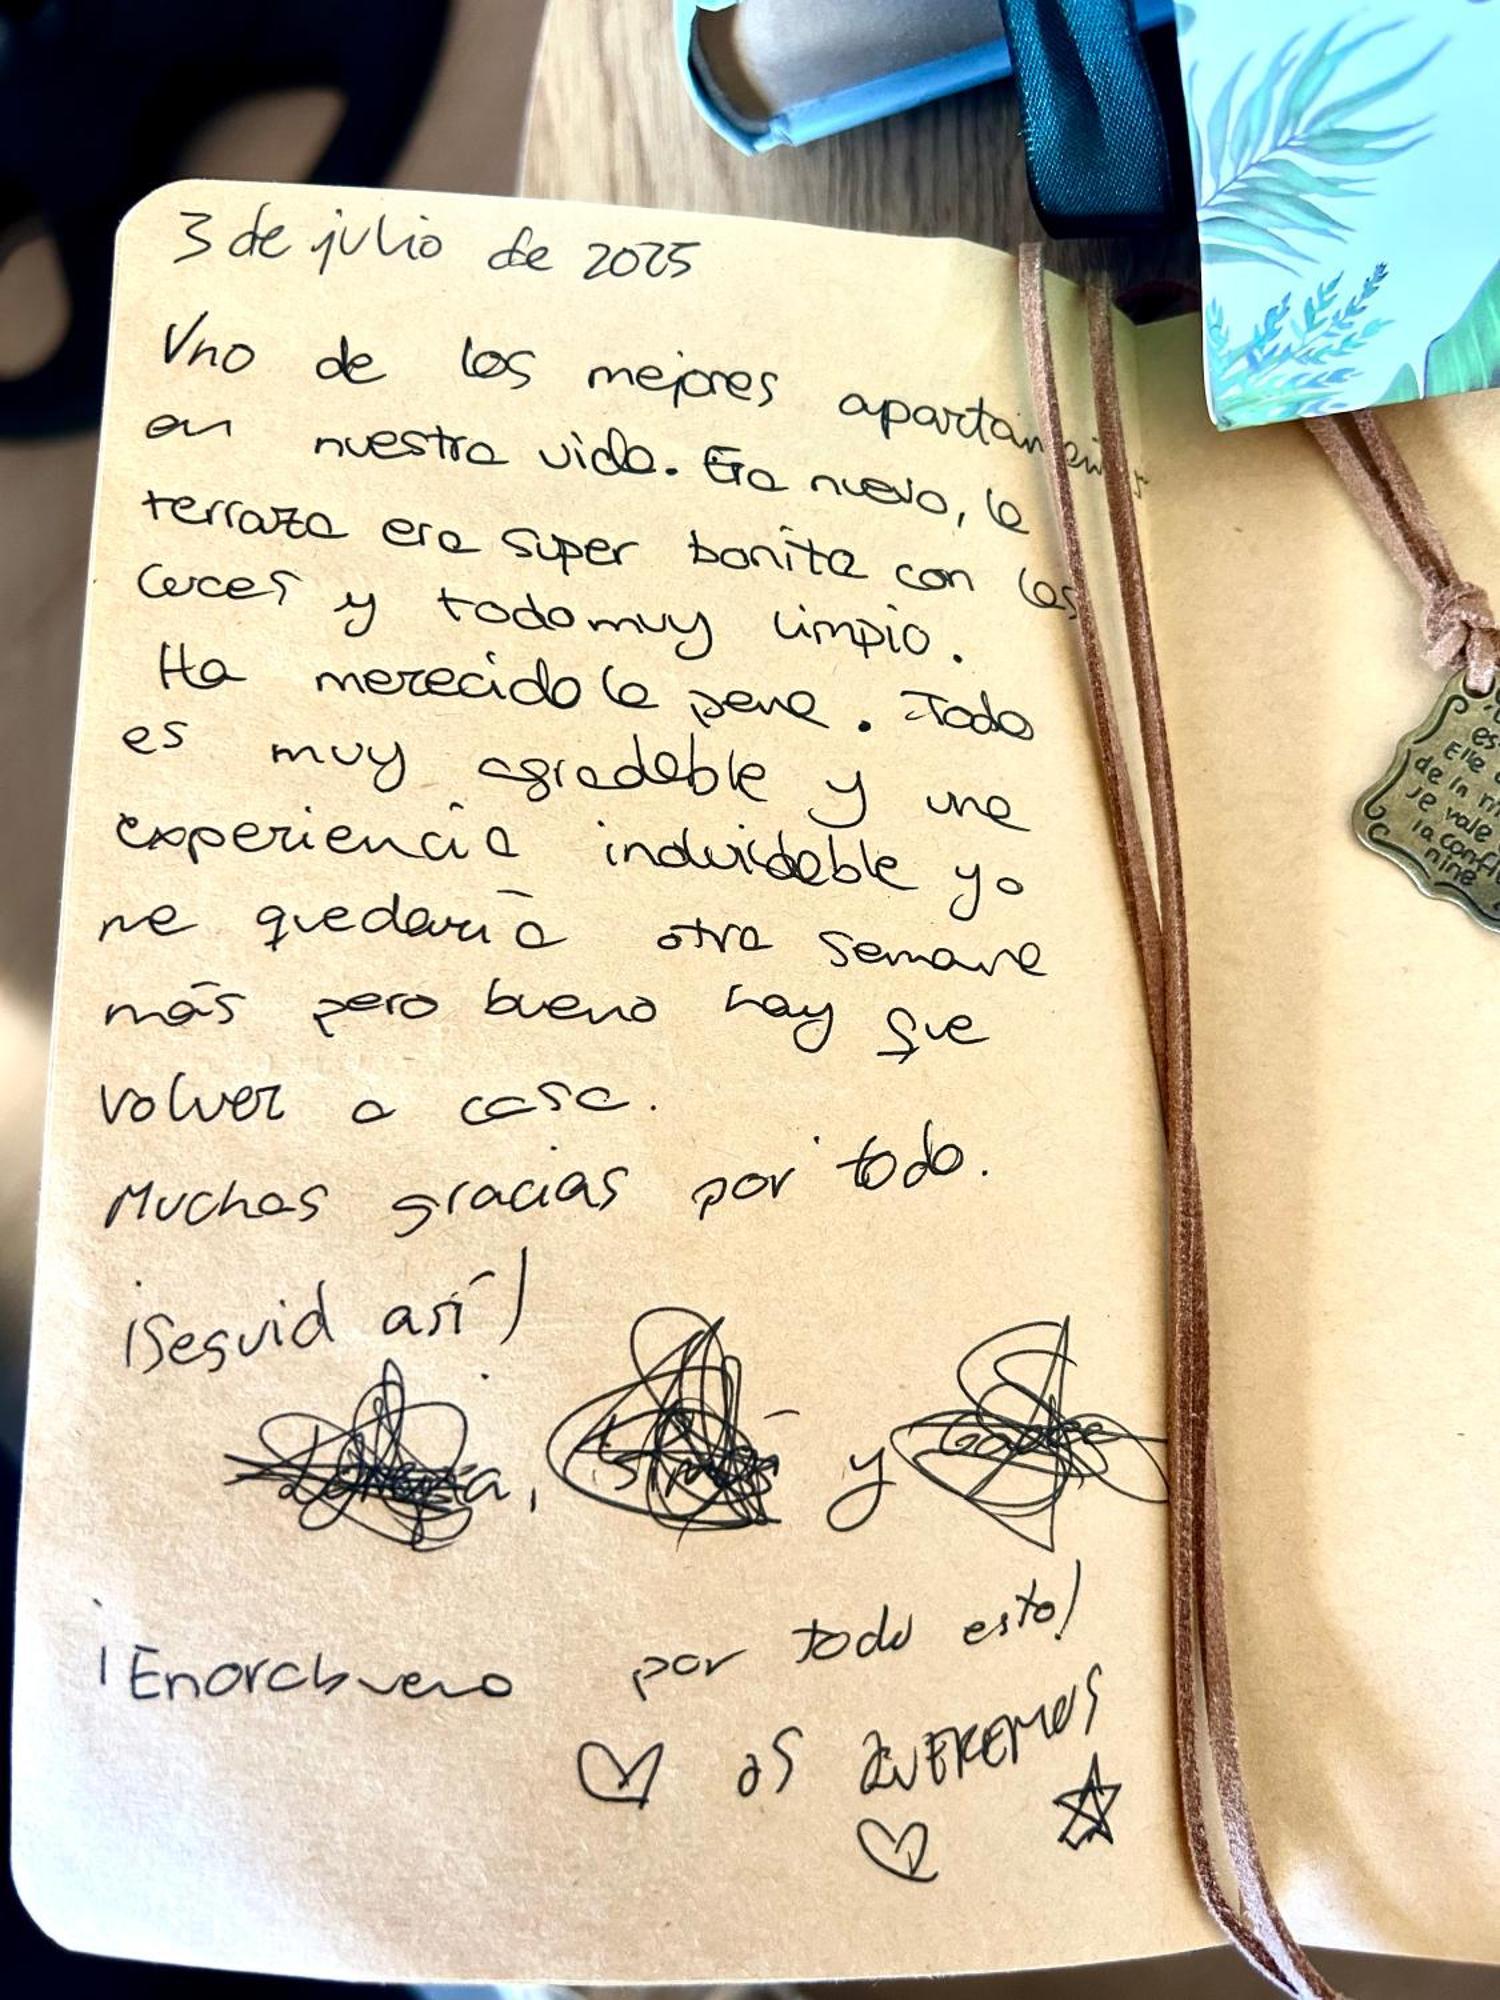 3 de julio de 2025
Uno de los mejores apartamentos
en nuestra vida. Era nuevo, la
terraza era super bonita con las
luces y todo muy limpio.
Ha merecido la pena. Todo
es muy agradable y una
experiencia induidable yo
me quedaría otra semana
más pero bueno hay que
volver a casa.
Muchas gracias por todo.
¡Seguid así!
y
¡Enorabuena por todo esto!
OS QUEREMOS
es
Elle
de la
je vale
la conf
nine